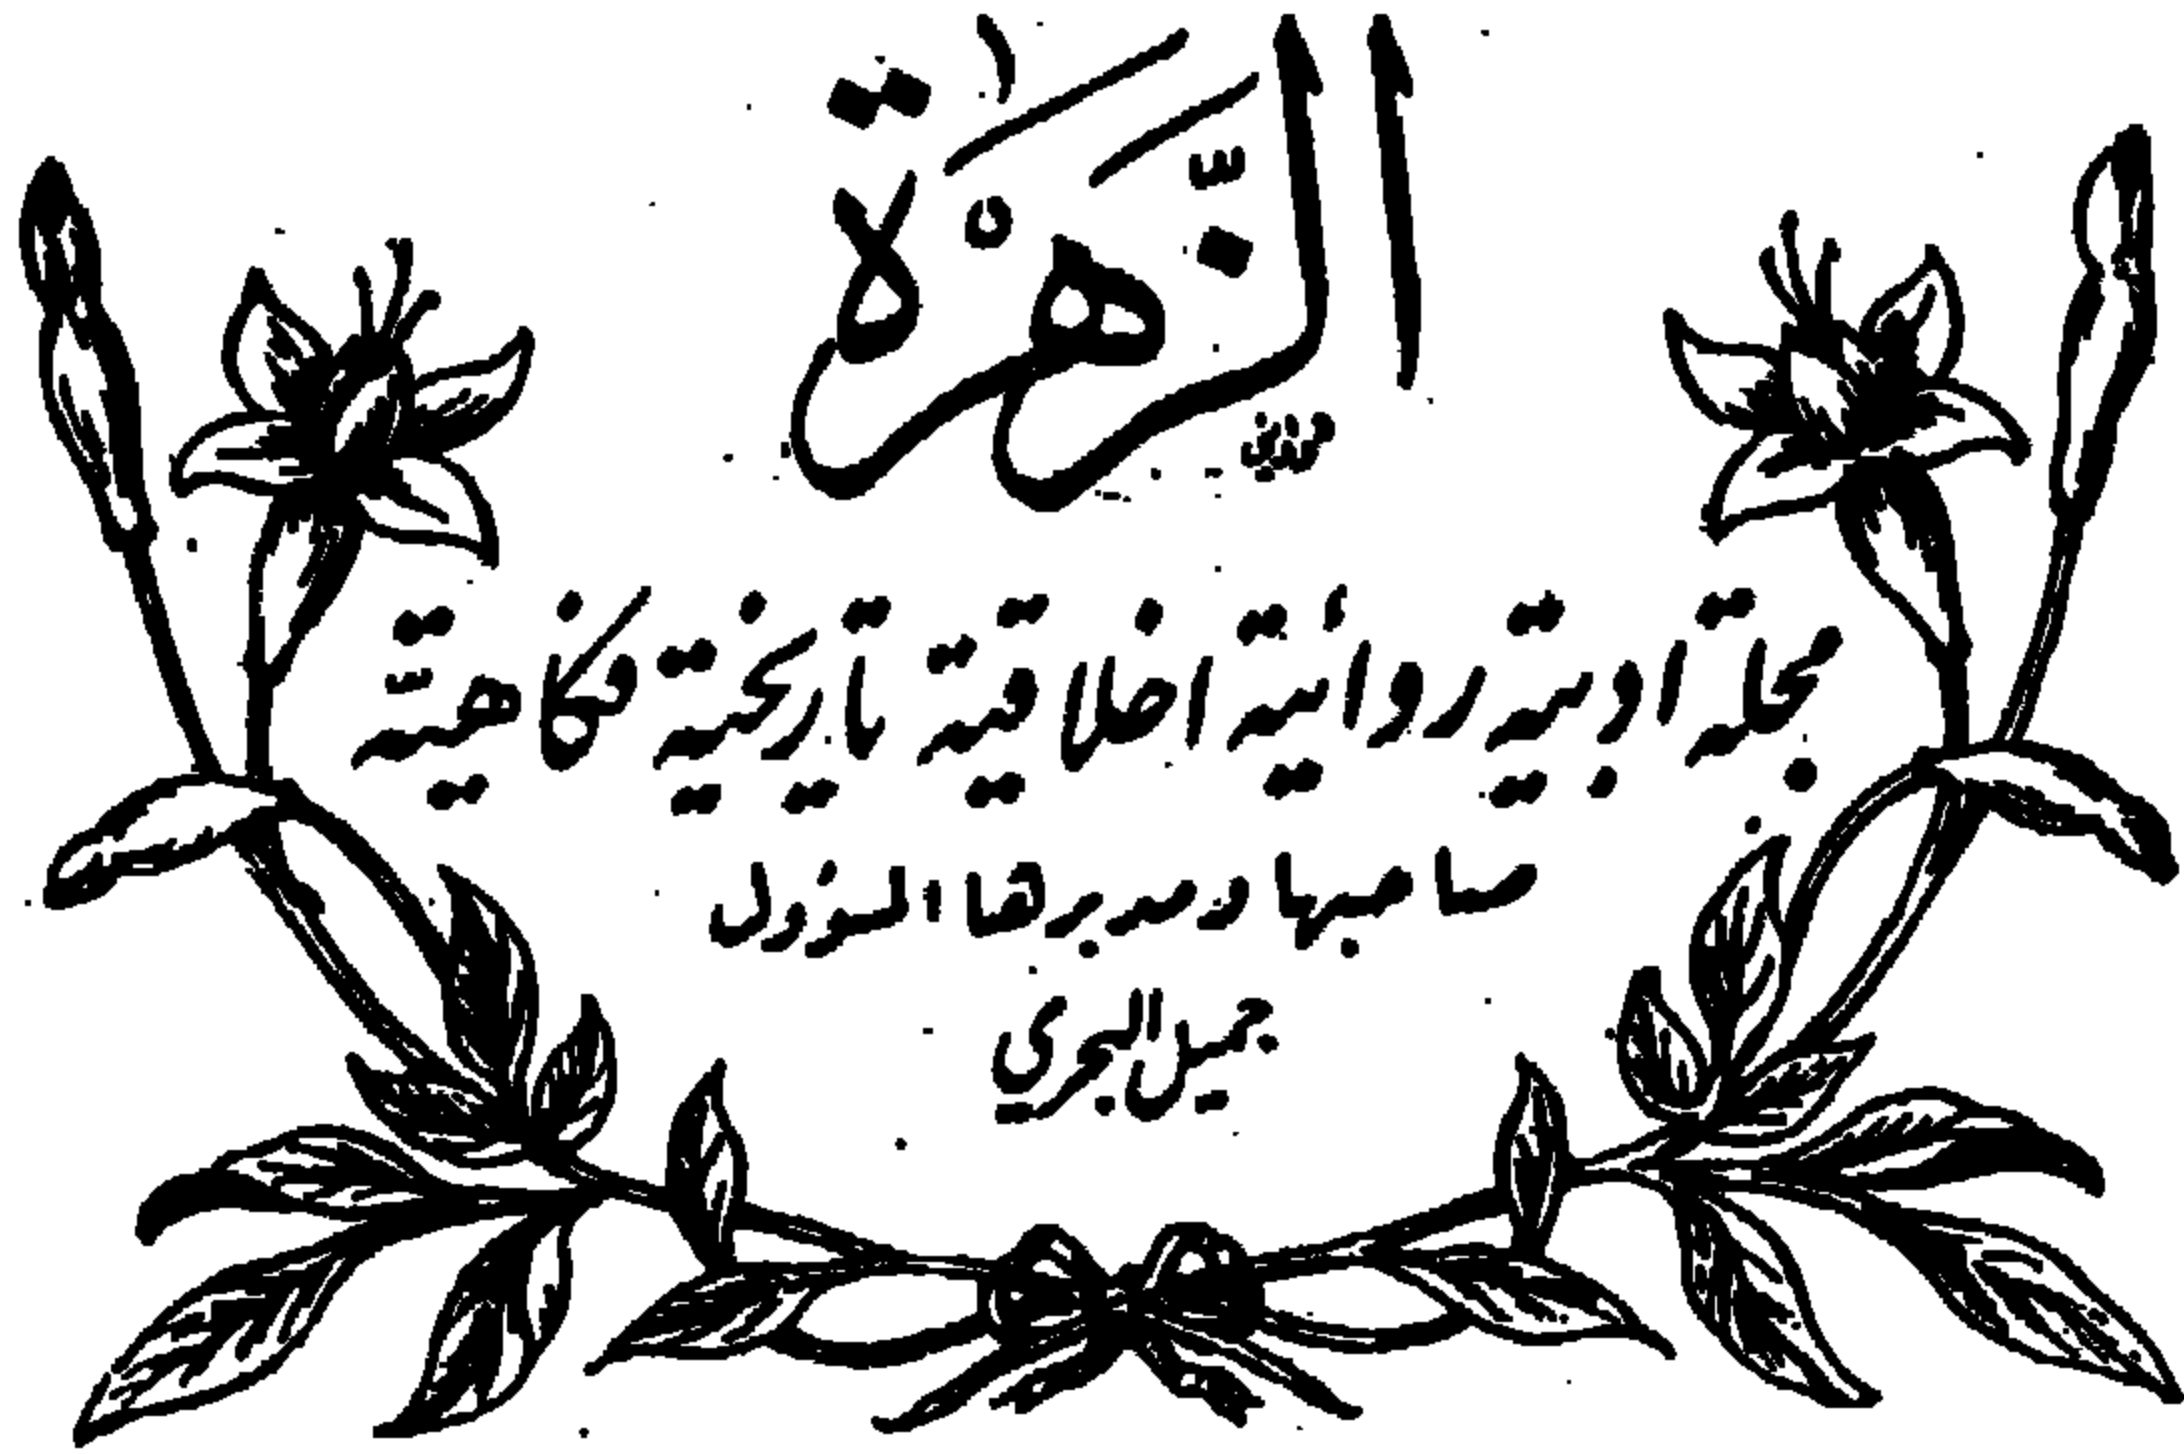 الزَّهْرَة
مجلة ادبية روائية اخلاقية تاريخية فكاهيّة
صاحبها ومديرها المسؤول
جميل البحري